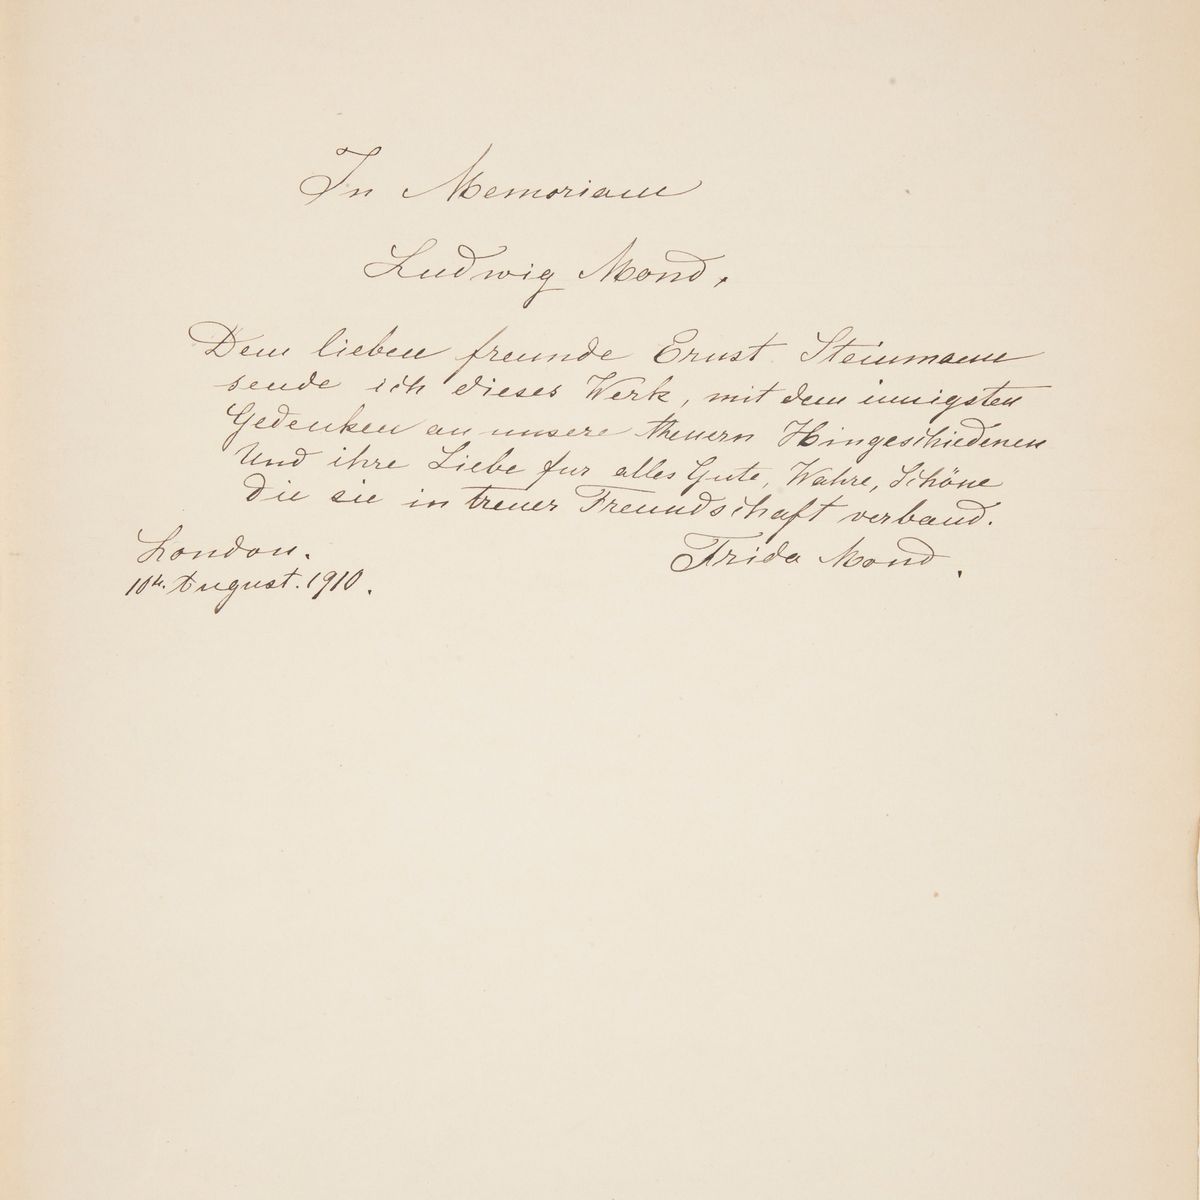 In Memoriam
Ludwig Mond,
Dem lieben freunde Ernst Steinmann
sende ich dieses Werk, mit dem innigsten
Gedenken an unsere theuern Hingeschiedenen
Und ihre Liebe fur alles Gute, Wahre, Schöne
Die sie in treuer Freundschaft verband.
London. Frida Mond.
10th. August. 1910.